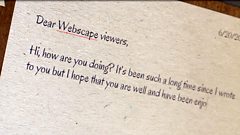 6/20/20
Dear Webscape viewers,
Hi, how are you doing? It's been such a long time since I wrote
to you but I hope that you are well and have been enjoy